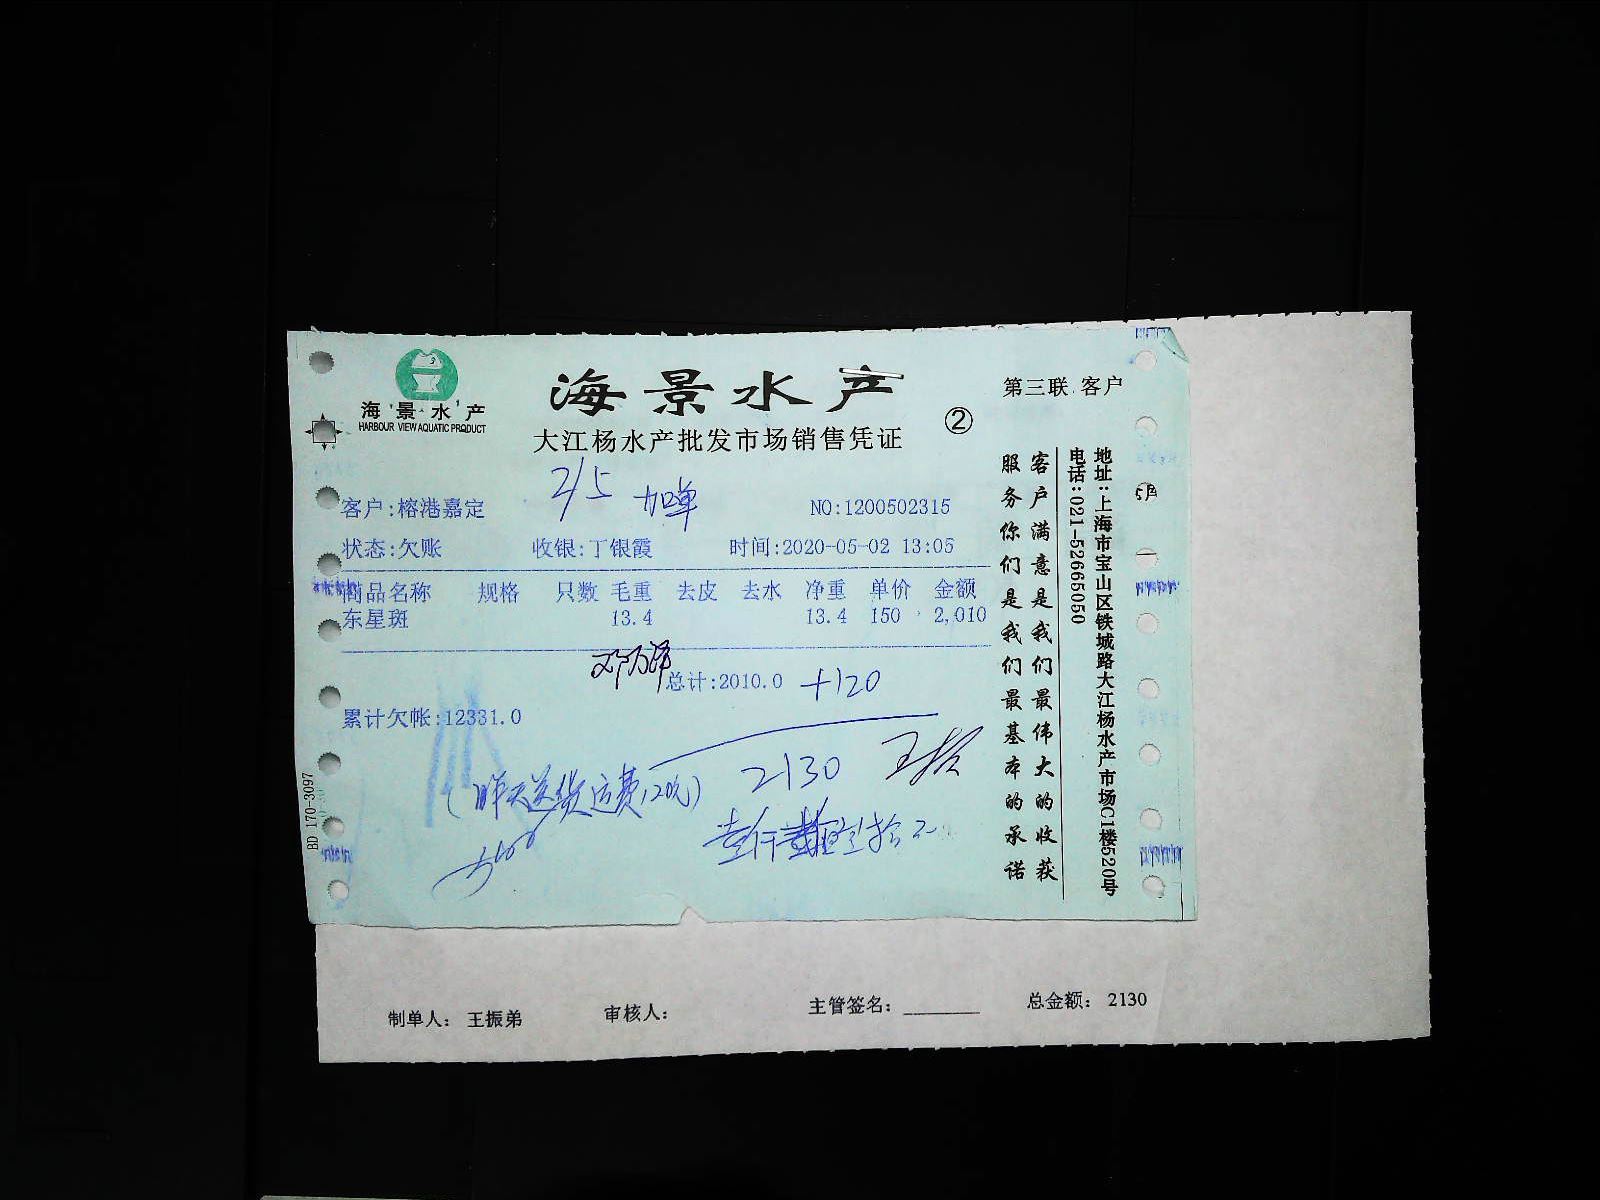 海景水产
HARBOUR VIEW AQUATIC PRODUCT
海景水产
大江杨水产批发市场销售凭证
②
第三联 客户
2/5 加单
客户:榕港嘉定 NO:1200502315
状态:欠账 收银:丁银霞 时间:2020-05-02 13:05
商品名称 规格 只数 毛重 去皮 去水 净重 单价 金额
东星斑 13.4 13.4 150 2,010
总计:2010.0 +120
累计欠帐:12331.0
2130
(昨天送货运费120元)
客户满意是我们最伟大的收获
服务你们是我们最基本的承诺
地址:上海市宝山区铁城路大江杨水产市场C1楼520号
电话:021-52665050
BD 170-3097
5月
制单人: 王振弟 审核人: 主管签名: 总金额: 2130